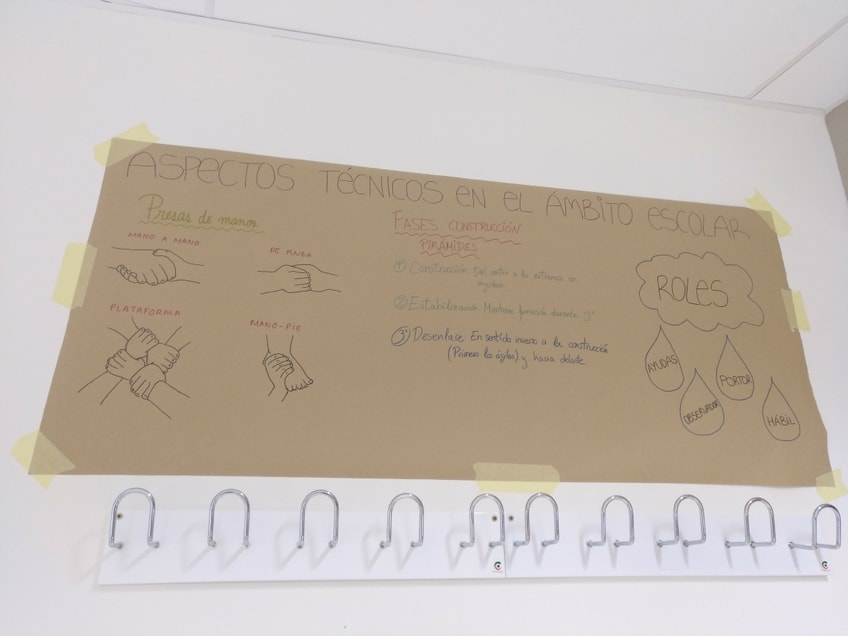 ASPECTOS TÉCNICOS EN EL ÁMBITO ESCOLAR
Presas de manos
MANO A MANO
DE PINZA
PLATAFORMA
MANO-PIE
FASES CONSTRUCCIÓN
PIRÁMIDES
① Construcción Del centro a los extremos con
ayudas.
② Estabilización Mantener formación durante 3"
③ Desenlace: En sentido inverso a la construcción
(Primero la ágiles) y hacia delante
ROLES
AYUDAS
OBSERVADOR
PORTOR
HÁBIL